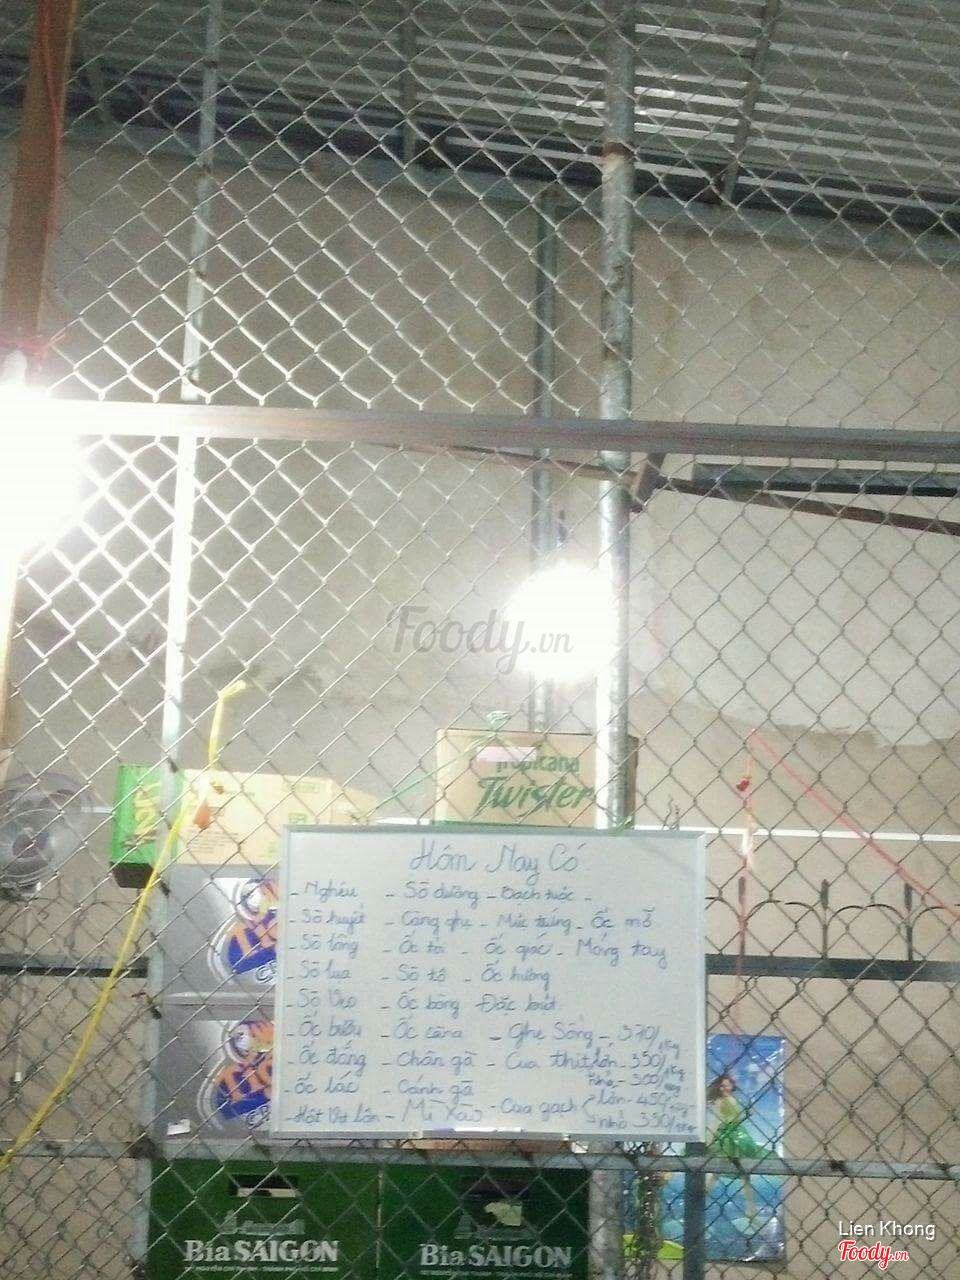 Foody.vn
Tropicana
Twister
Hôm Nay Có
- Nghêu - Sò dương - Bạch tuộc -
- Sò huyết - Càng ghẹ - Mực trứng - Ốc mỡ
- Sò lông - Ốc tỏi - Ốc giác - Móng tay
- Sò lụa - Sò tô - Ốc hương
- Sò - Ốc bông Đặc biệt
- Ốc bươu - Ốc cana - Ghẹ Sống - 370/1kg
- Ốc đắng - Chân gà - Cua thịt lớn - 350/1kg
nhỏ - 300/1kg
- Ốc lác - Cánh gà
- Hột Vịt lộn - Mì Xào - Cua gạch lớn - 450
nhỏ 350/1kg
Bia SAIGON
Bia SAIGON
Lien Khong
Foody.vn